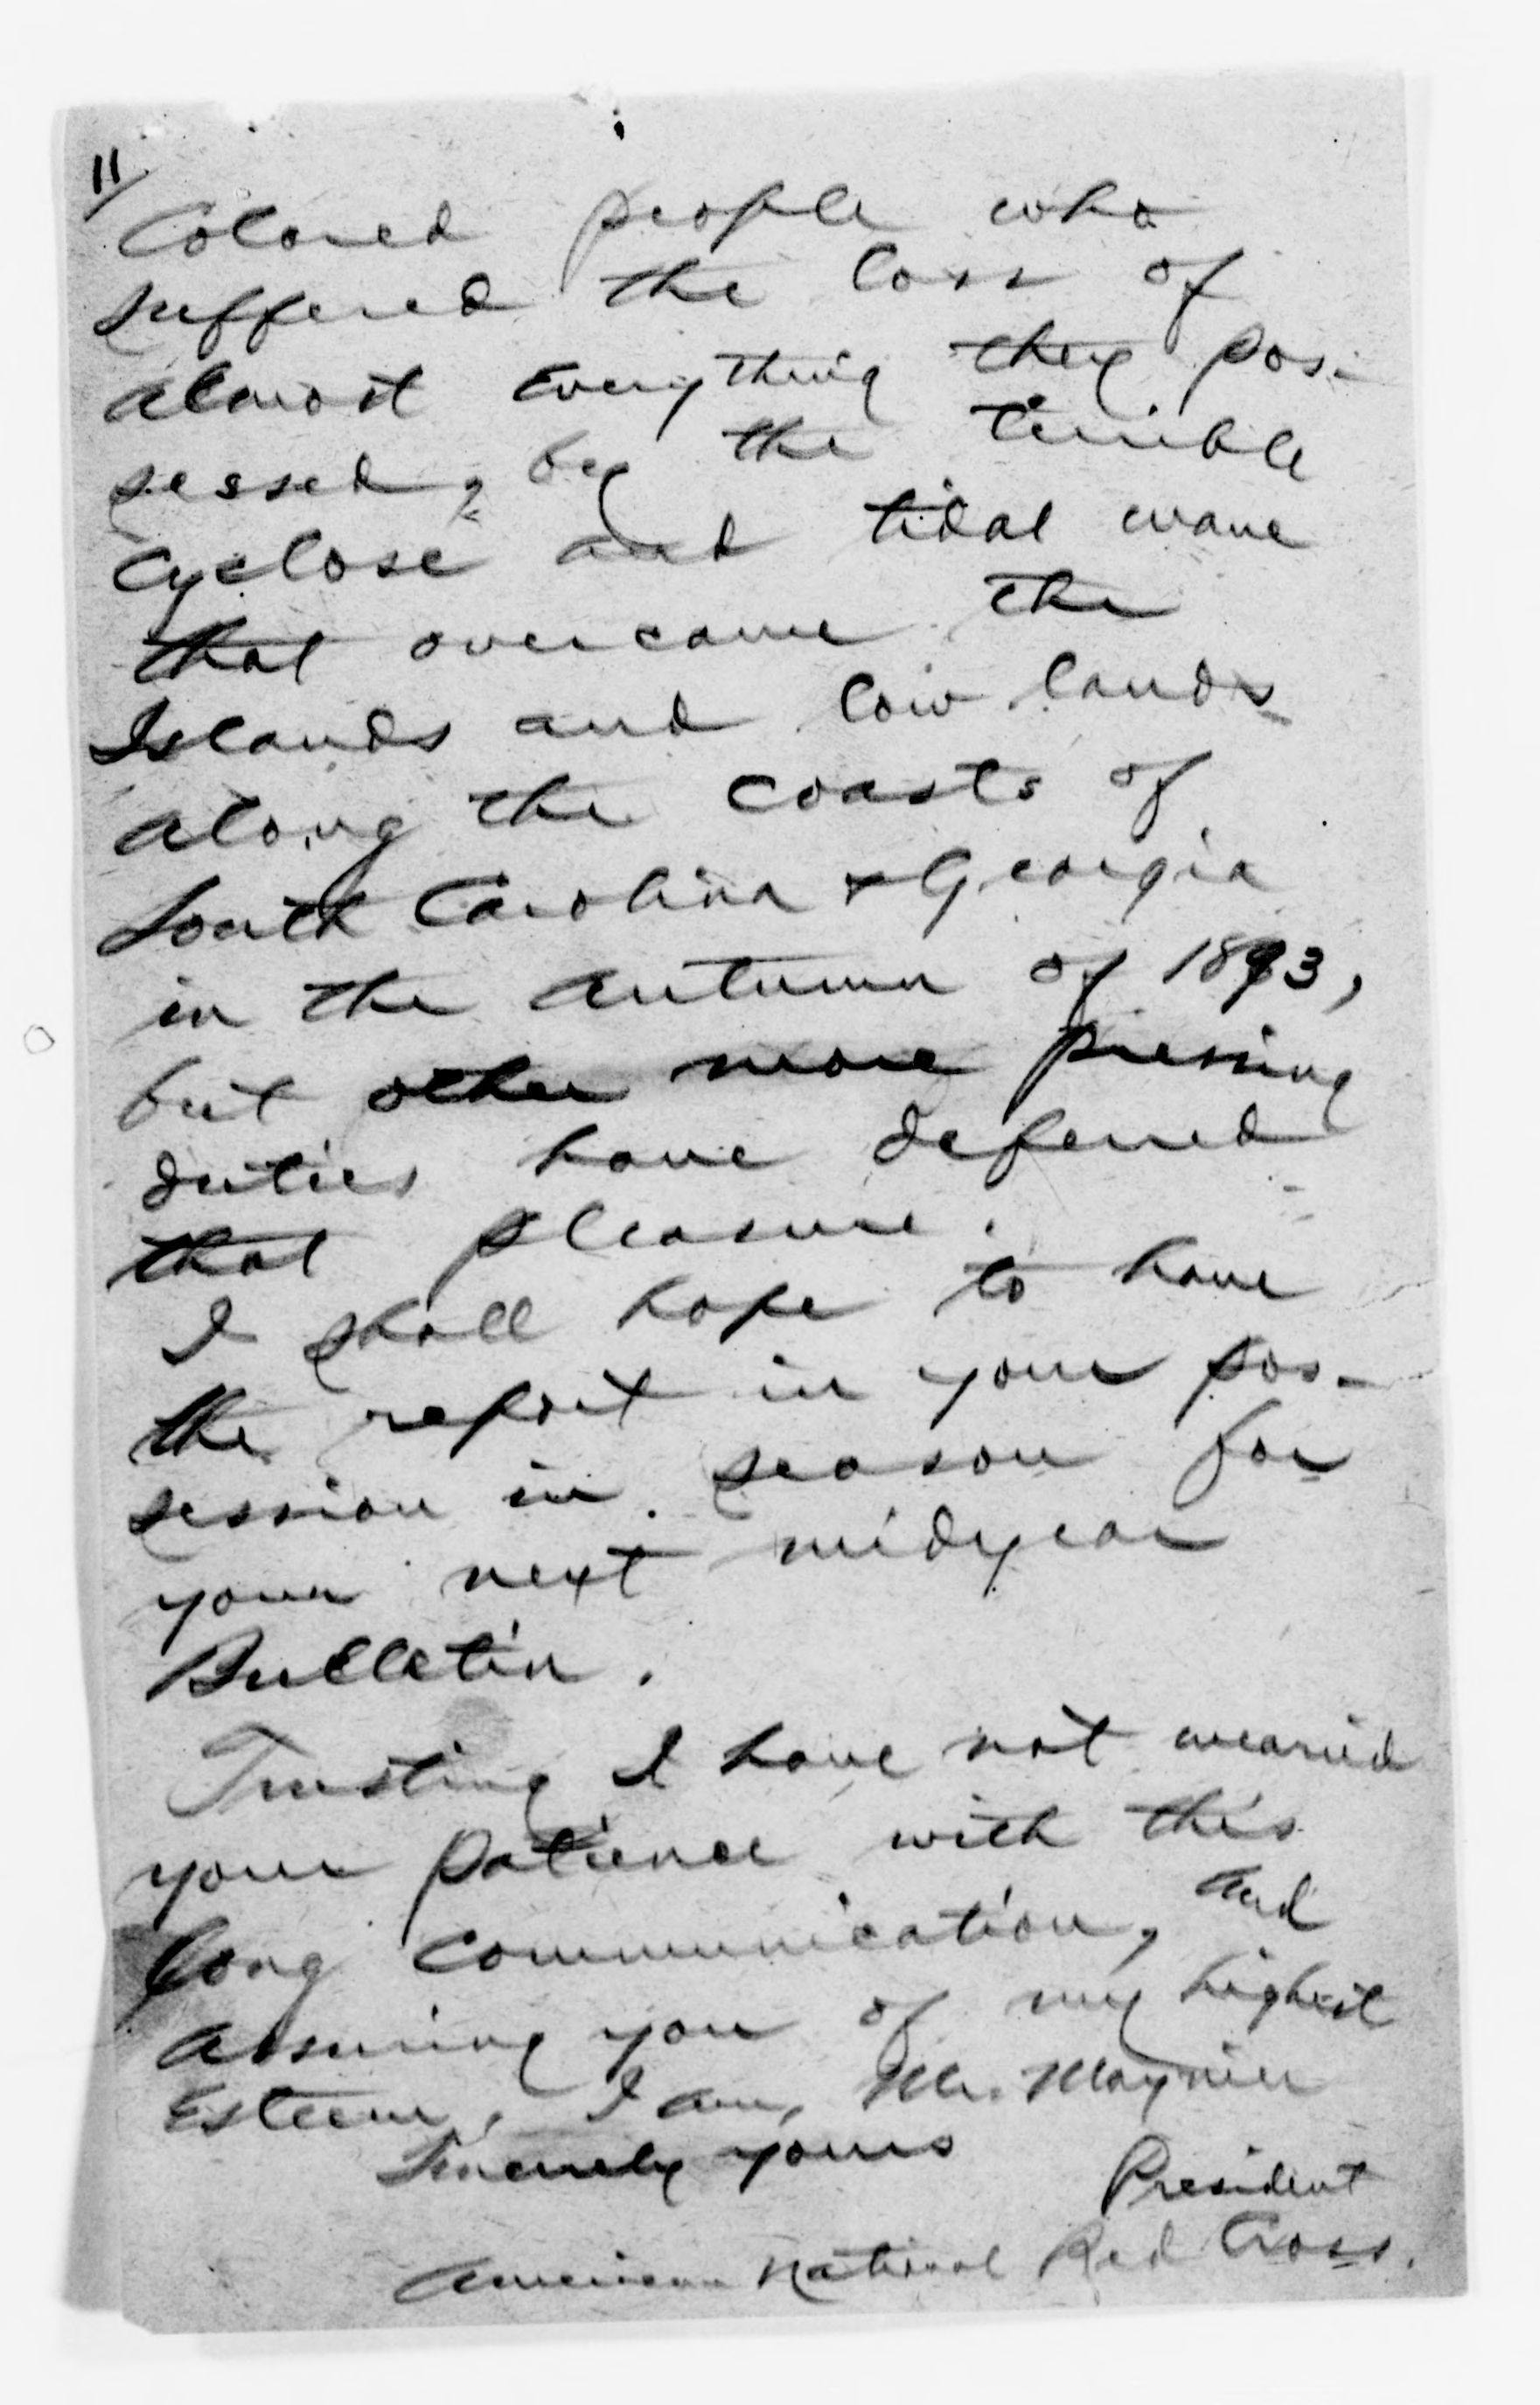 11/
Colored people who
suffered the loss of
almost everything they pos-
sessed, by the terrible
cyclose and tidal wave
that overcame the
Islands and low lands
along the coasts of
South Carolina & Georgia
in the autumn of 1893,
but other more pressing
duties have deferred
that pleasure.
I shall hope to have
the report in your pos-
session in season for
your next midyear
Bulletin.
Trusting I have not wearied
your patience with this
long communication, and
assuring you of my highest
Esteem, I am, Mr. Maynier
Sincerely yours
President
American National Red Cross.